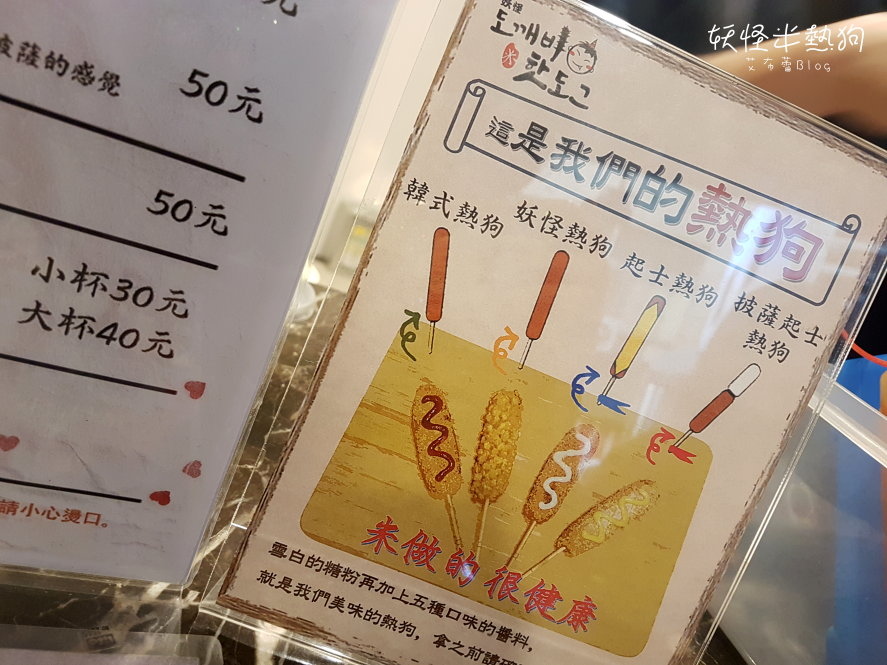 妖怪米熱狗
艾布蕾Blog
元
披薩的感覺 50元
50元
小杯30元
大杯40元
請小心燙口。
妖怪
도깨비
米
핫도그
這是我們的熱狗
韓式熱狗
妖怪熱狗
起士熱狗
披薩起士
熱狗
米做的 很健康
雪白的糖粉再加上五種口味的醬料,
就是我們美味的熱狗, 拿之前請